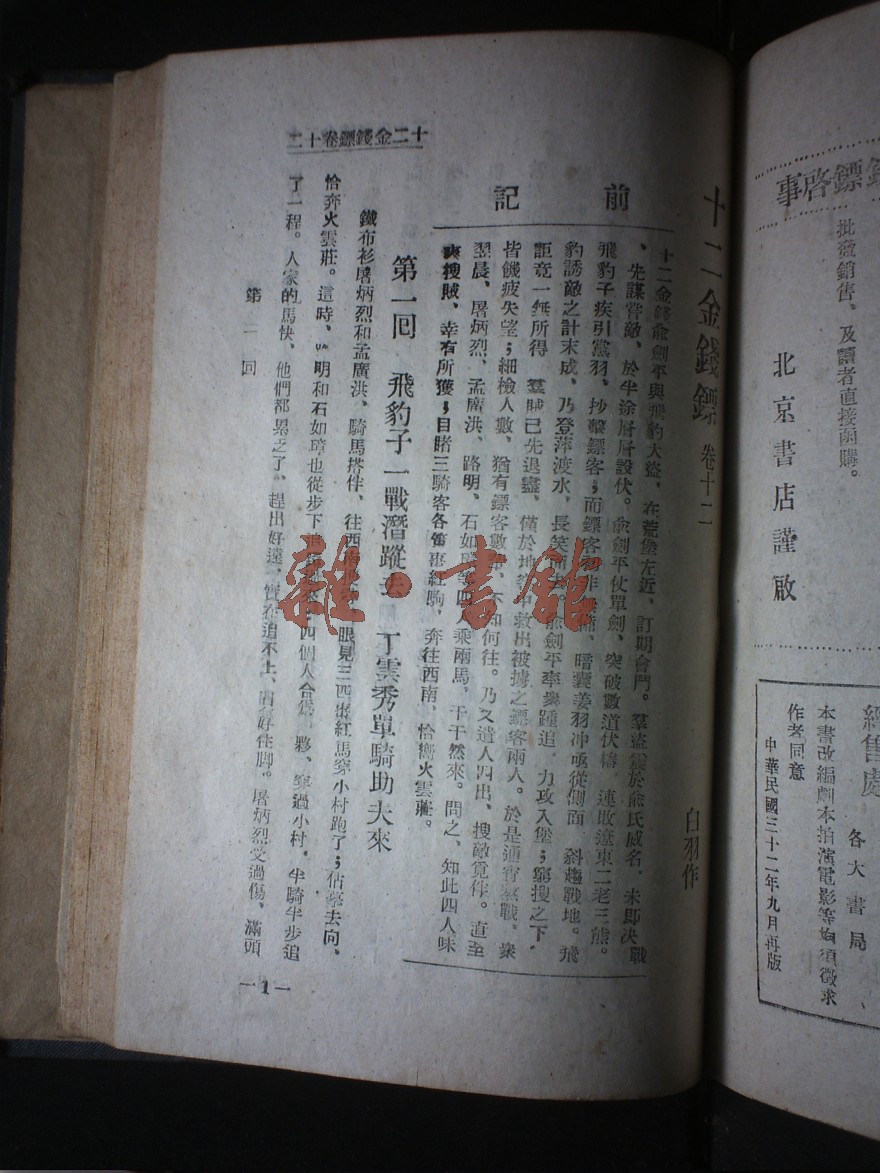 錢鏢啓事
批發銷售、及讀者直接函購。
北京書店謹啟
經售處
各大書局
本書改編劇本拍演電影等均須徵求
作者同意
中華民國三十二年九月再版
十二金錢鏢 卷十二
白羽作
前記
十二金錢俞劍平與飛豹大盜、在荒堡左近、訂期會鬥。羣盜震於俞氏威名、未即決戰
、先謀嘗敵、於半途層層設伏。俞劍平仗單劍、突破數道伏樁 連敗遼東二老三熊。
飛豹子疾引黨羽、抄擊鏢客；而鏢客 非 備、暗囊姜羽冲亟從側面 斜趨戰地。飛
豹誘敵之計未成、乃登萍渡水、長笑 俞劍平率衆踵追、力攻入堡；窮搜之下、
詎竟一無所得 羣賊已先退盡、僅於地 中救出被擄之鏢客兩人。於是通宵羣戰、衆
皆饑疲失望；細檢人數、猶有鏢客數 、不知何往。乃又遣人四出、搜敵覓伴。直至
翌晨、屠炳烈、孟廣洪、路明、石如璋等四人乘兩馬、干干然來。問之、知此四人昧
爽搜賊、幸有所獲；目睹三騎客各 棗紅駒、奔往西南、恰嚮火雲莊。
第一回 飛豹子一戰潛蹤去 丁雲秀單騎助夫來
鐵布衫屠炳烈和孟廣洪、騎馬搭伴、往西 眼見三匹棗紅馬穿小村跑了；估摹去向、
恰奔火雲莊。這時、 明和石如璋也從步下 四個人合 夥、穿過小村、半騎半步追
了一程。人家的馬快、他們都累乏了、趕出好遠、實在追不上、 好住脚。屠炳烈受過傷、滿頭
十二金錢鏢卷十二
第一回
—1—
雜·書館